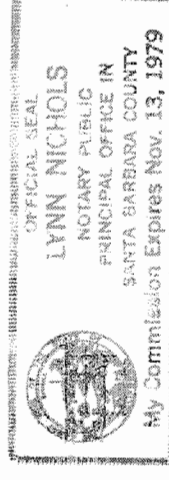 OFFICIAL SEAL
LYNN NICHOLS
NOTARY PUBLIC
PRINCIPAL OFFICE IN
SANTA BARBARA COUNTY
My Commission Expires Nov. 13, 1979